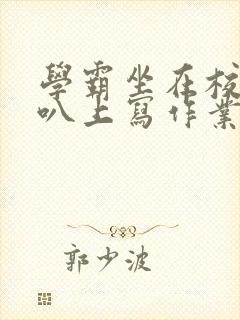 學霸坐在校
叭上寫作業
郭少波